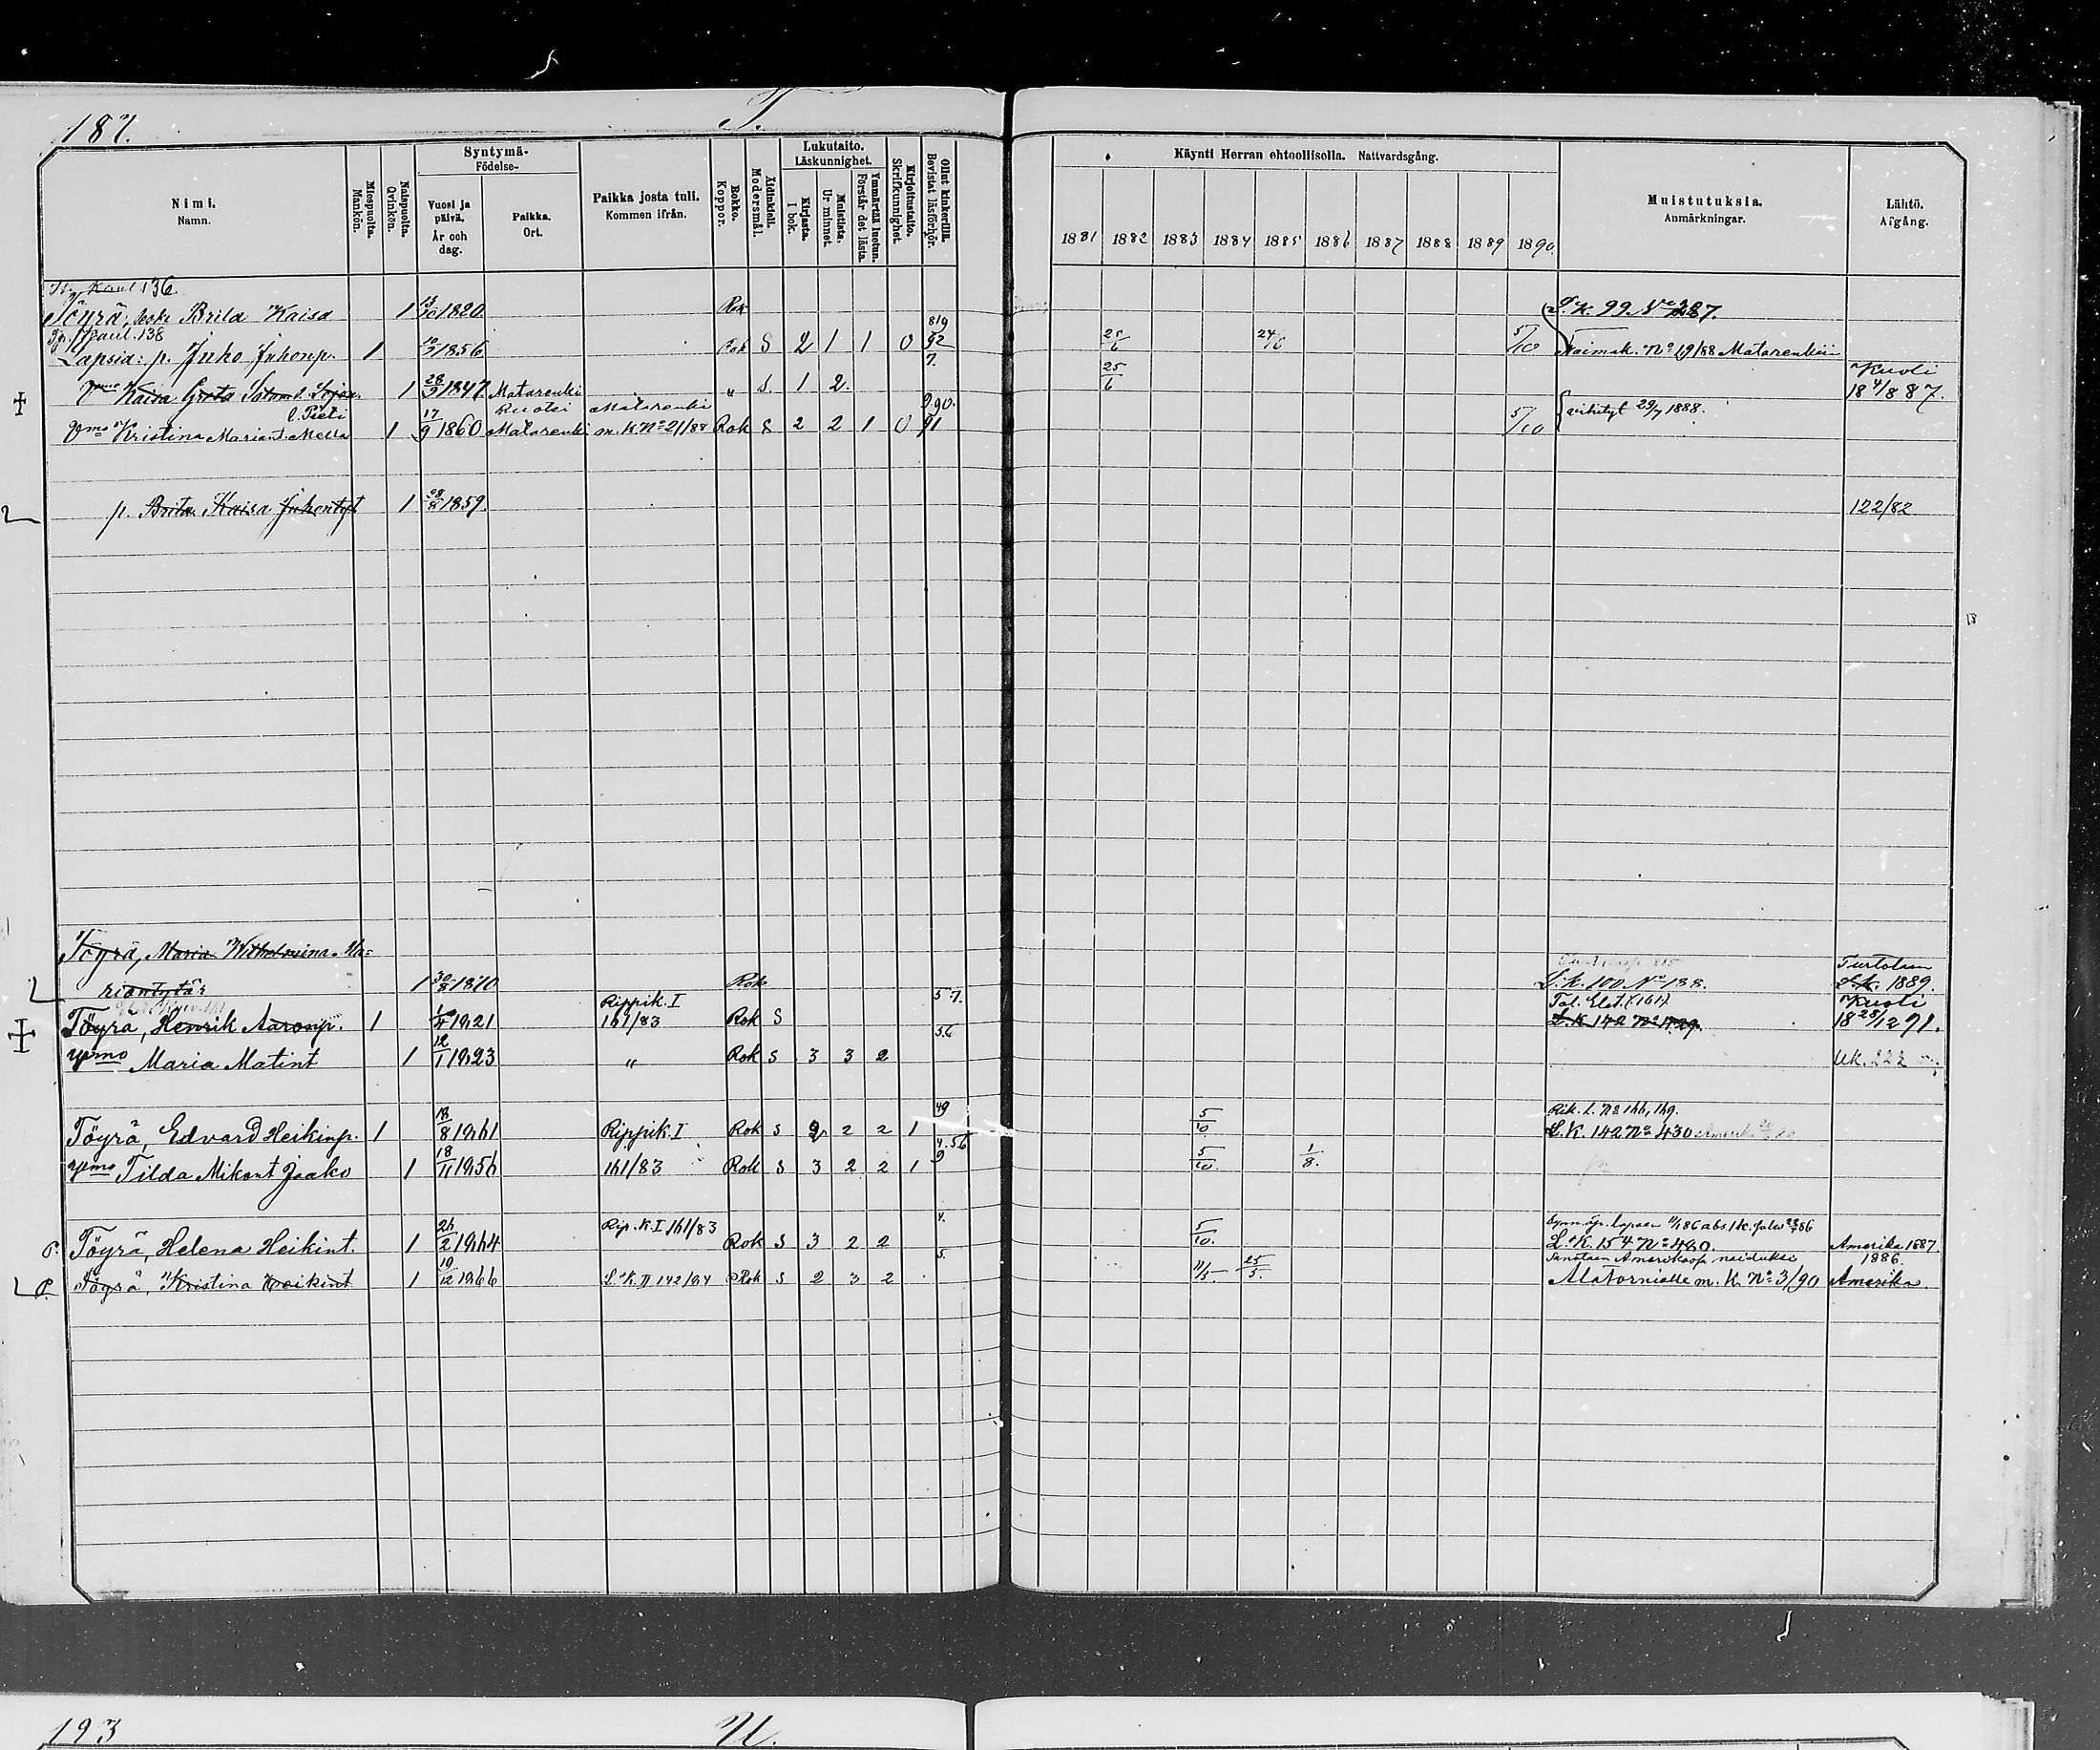 187.
T.
Nimi.
Namn.
Miespuolta.
Mankön.
Naispuolta.
Qvinkön.
Syntymä-
Födelse-
Vuosi ja
päivä.
År och
dag.
Paikka.
Ort.
Paikka josta tuli.
Kommen ifrån.
Rokko.
Koppor.
Äidinkieli.
Modersmål.
Lukutaito.
Läskunnighet.
Kirjasta.
I bok.
Muistista.
Ur minnet.
Ymmärtää luetun.
Förstår det lästa.
Kirjoitustaito.
Skrifkunnighet.
Ollut kinkerillä.
Bevistat läsförhör.
Käynti Herran ehtoollisella. Nattvardsgång.
1881 1882 1883 1884 1885 1886 1887 1888 1889 1890.
Muistutuksia.
Anmärkningar.
Lähtö.
Afgång.
136.
Töyrä, leski Brita Kaisa 1 1820 Rok L.K. 99. No 287.
138
Lapsia: p. Juho Juhonp. 1 1856 Rok S 2 1 1 0 92 25/6 24/6 5/10 Naimak. No 19/88 Matarenkiin
7.
Vmo Kaisa Greta 1 28/9 1847 Matarenki " S. 1 2. 25/6 Kuoli
18 4/8 87.
l. Pieti Ruotsi Matarenki 9.90.
Vmo Kristina Mariant. Mella 1 17/9 1860 Matarenki m. K No 21/88 Rok S 2 2 1 0 91 5/10 vihityt 29/7 1888.
p. Brita Kaisa Juhontyt 1 28/8 1859. 122/82
Töyrä, Maria Wilhelmiina Ma=
riantytär 1 30/8 1870 Rok L.K. 100 No 188. Turtolaan
L.K. 1889.
Rippik. I 57.
Töyrä, Henrik Aaronp. 1 1/4 1821 161/83 Rok S Tal. Elät. (161). Kuoli
L.K 142 No 429. 18 28/12 91.
56
vmo Maria Matint 1 12/1 1823 " Rok S 3 3 2 Uk. 222
49 Rik. L. No 166, 169.
Töyrä, Edvard Heikinp. 1 18/8 1861 Rippik. I Rok S 2 2 2 1 5/10 L.K. 142 No 430
4.56
vmo Tilda Mikont Jaako 1 18/11 1856 161/83 Rok S 3 2 2 1 9 5/10. 1/8.
Rip. K. I 161/83 4.
Töyrä, Helena Heikint. 1 26/2 1864 Rok S 3 2 2 5/10. L.K. 154 No 480. Amerika 1887.
5. 1886.
Töyrä, Kristina Heikint 1 19/12 1866 L.K. II 142/84 Rok S 2 3 2 11/5 25/5. Alatorniolle m. K. No 3/90 Amerika
193
U.